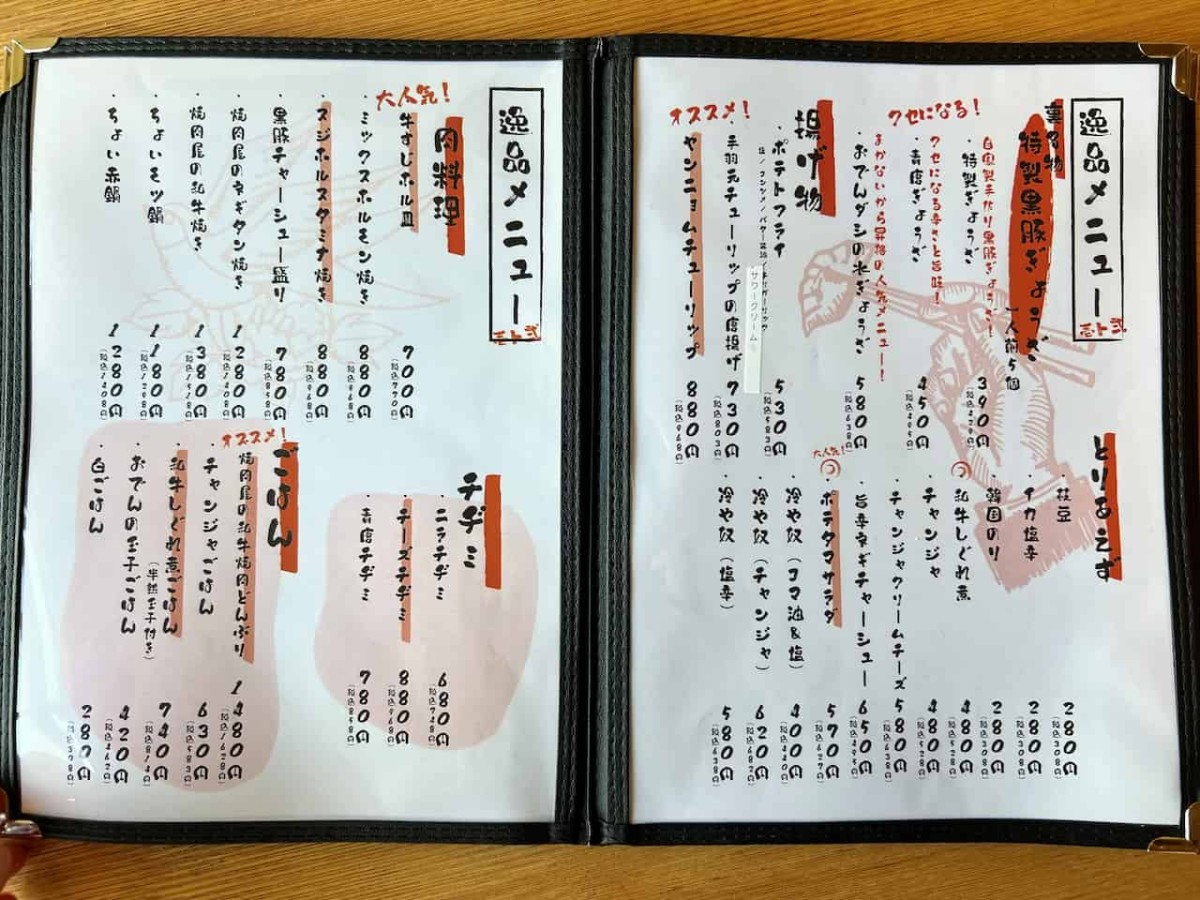 逸品メニュー
壱ト弐
裏名物
特製黒豚ぎょうざ
一人前5個
自家製手作り黒豚ぎょうざ!
・特製ぎょうざ
390円
(税込429円)
クセになる!
クセになる辛さと旨味!
・青唐ぎょうざ
450円
(税込495円)
まかないから昇格の人気メニュー!
・おでんダシの水ぎょうざ
580円
(税込638円)
揚げ物
・ポテトフライ
530円
(税込583円)
サワークリーム
・手羽元チューリップの唐揚げ
730円
(税込803円)
オススメ!
・ヤンニョムチューリップ
880円
(税込968円)
とりあえず
・枝豆
280円
(税込308円)
・イカ塩辛
280円
(税込308円)
・韓国のり
280円
(税込308円)
・和牛しぐれ煮
480円
(税込528円)
・チャンジャ
480円
(税込528円)
・チャンジャクリームチーズ
580円
(税込638円)
・旨辛ネギチャーシュー
650円
大人気!
・ポテタマサラダ
570円
(税込627円)
・冷や奴(ゴマ油&塩)
400円
(税込440円)
・冷や奴(チャンジャ)
620円
(税込682円)
・冷や奴(塩辛)
580円
(税込638円)
逸品メニュー
壱ト弐
肉料理
大人気!
・牛すじホル皿
700円
(税込770円)
・ミックスホルモン焼き
880円
(税込968円)
・スジホルスタミナ焼き
880円
(税込968円)
・黒豚チャーシュー盛り
780円
(税込858円)
・焼肉屋のネギタン焼き
1280円
(税込1408円)
・焼肉屋の和牛焼き
1380円
(税込1518円)
・ちょいモツ鍋
1180円
(税込1298円)
・ちょい赤鍋
1280円
(税込1408円)
チヂミ
・ニラチヂミ
680円
(税込748円)
・チーズチヂミ
880円
(税込968円)
・青唐チヂミ
780円
(税込858円)
ごはん
オススメ!
・焼肉屋の和牛焼肉どんぶり
1480円
(税込1628円)
・チャンジャごはん
630円
・和牛しぐれ煮ごはん
(半熟玉子付き)
740円
(税込814円)
・おでんの玉子ごはん
420円
(税込462円)
・白ごはん
280円
(税込308円)